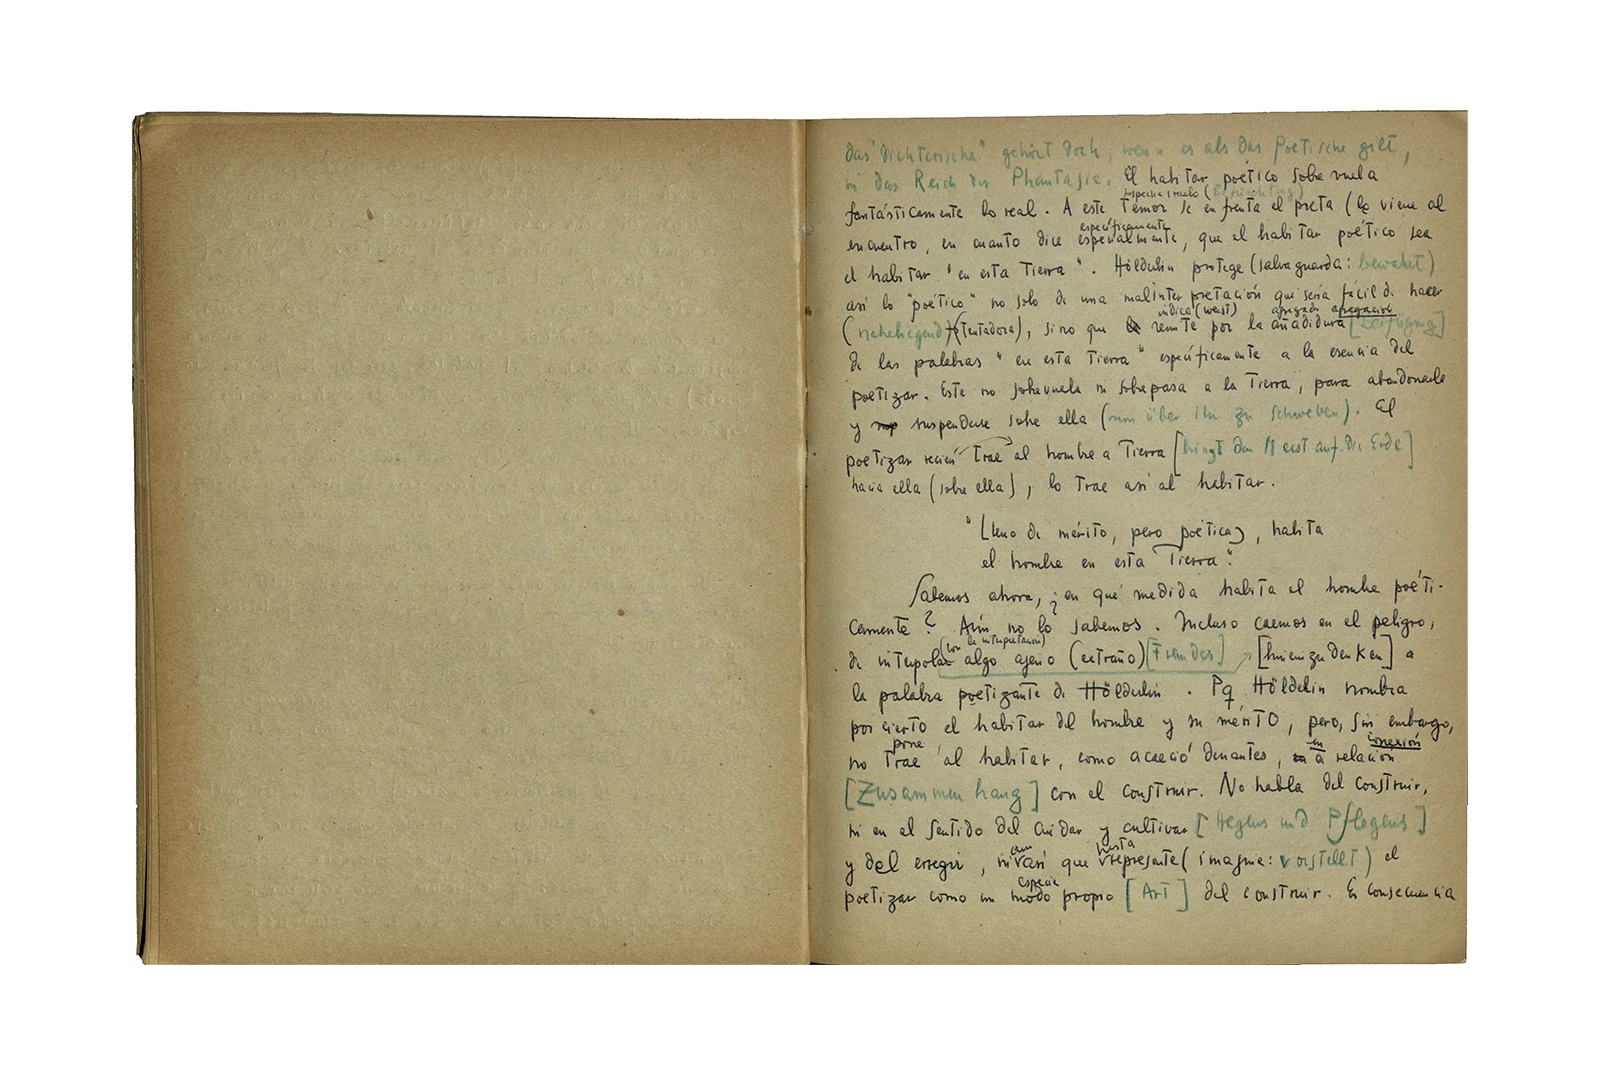 das "dichterische" gehört doch, wenn es als das Poetische gilt,
in das Reich der Phantasie. El habitar poético sobrevuela
suspecha, recelo (Befürchtung)
fantásticamente lo real. A este temor se enfrenta el poeta (le viene al
específicamente
encuentro, en cuanto dice especialmente, que el habitar poético sea
el habitar "en esta Tierra". Hölderlin protege (salvaguarda: bewahrt)
así lo "poético" no solo de una malinterpretación que sería fácil de hacer
indica (weist) agregado agregación
(naheliegend) (tentadora), sino que remite por la añadidura [Beifügung]
de las palabras "en esta Tierra" específicamente a la esencia del
poetizar. Este no sobrevuela ni sobrepasa a la Tierra, para abandonarle
y suspenderse sobre ella (um über ihr zu schweben). El
poetizar recién trae al hombre a Tierra [bringt den M erst auf die Erde]
hacia ella (sobre ella), lo trae así al habitar.
"Lleno de mérito, pero poético, habita
el hombre en esta Tierra".
Sabemos ahora, ¿en qué medida habita el hombre poéti-
camente? Aún no lo sabemos. Incluso caemos en el peligro,
(con la interpretación)
de interpolar algo ajeno (extraño) [Fremdes] [hineinzudenken] a
la palabra poetizante de Hölderlin. Pq Hölderlin nombra
por cierto el habitar del hombre y su mérito, pero, sin embargo,
pone en conexión
no trae al habitar, como acaeció denantes, a relación
[Zusammenhang] con el construir. No habla del construir,
ni en el sentido del cuidar y cultivar [Hegens und Pflegens]
aun hasta
y del erregir, ni así que represente (imagine: vorstellt) el
especie
poetizar como un modo propio [Art] del construir. En consecuencia